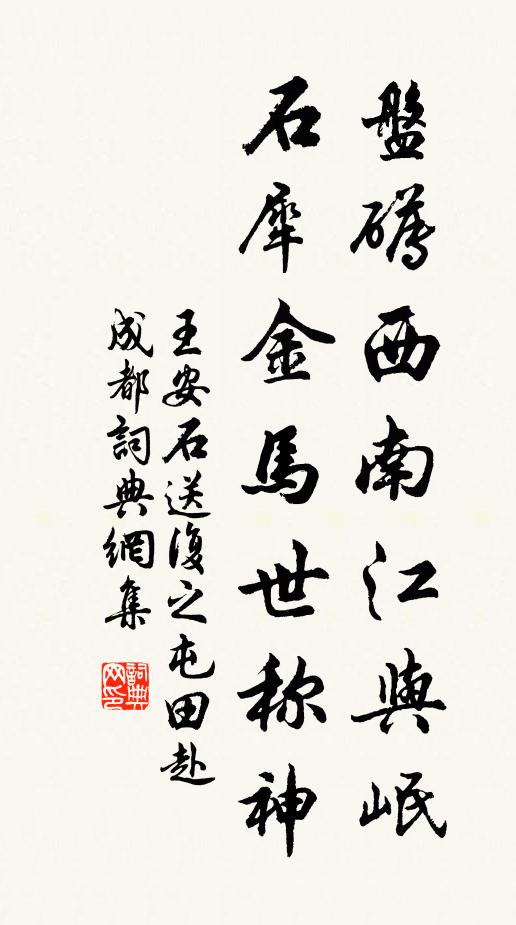 盤礴西南江與岷
石犀金馬世称神
王安石送復之屯田赴
成都詞典網集
詞典网印